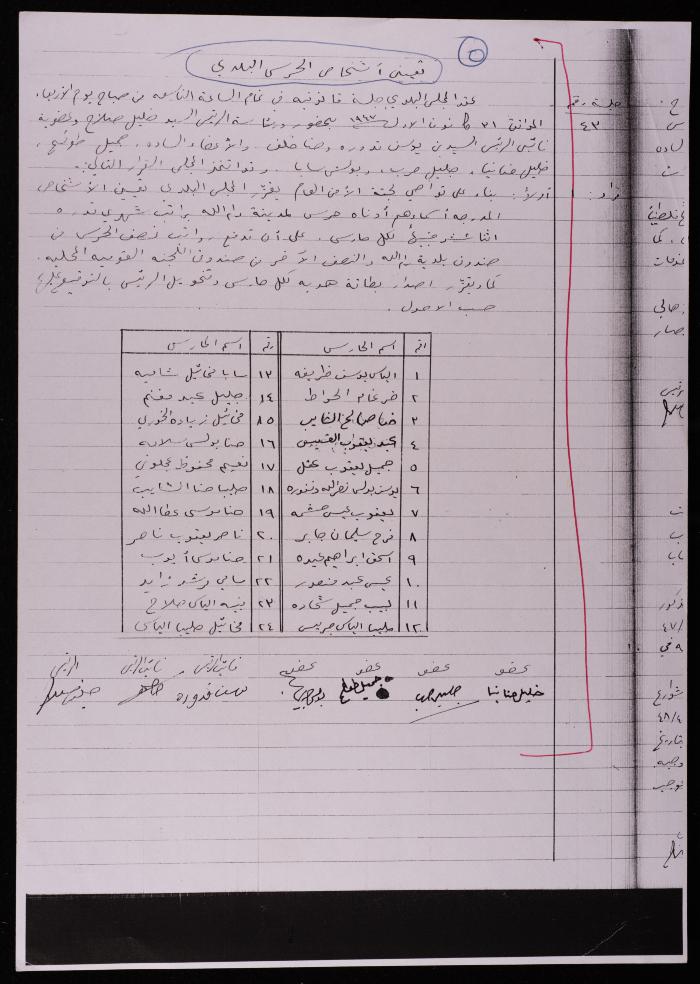 ٥
تعيين أشخاص الحرس البلدي
جلسة رقم
٤٣
عقد المجلس البلدي جلسة قانونية في تمام الساعة التاسعة من صباح يوم الأربعاء
الموافق ٣١ كانون الاول ١٩٤٧ بحضور ورئاسة الرئيس السيد خليل صلاح وعضوية
نائبي الرئيس السيدين يوسف قدوره وحنا خلف. والأعضاء الساده. جميل طوشح،
خليل حنانيا، جليل حرب، وبولس سابا. وقد اتخذ المجلس القرار التالي:
قرار: ١ أولاً: بناء على تواصي لجنة الأمن العام يقرر المجلس البلدي تعيين الأشخاص
المدرجه أسماءهم أدناه حرس لمدينة رام الله براتب شهري قدره
اثنا عشر جنيهاً لكل حارس. على أن تدفع رواتب نصف الحرس من
صندوق بلدية رام الله والنصف الآخر من صندوق اللجنه القوميه المحليه.
كما ويقرر اصدار بطاقة هويه لكل حارس وتخويل الرئيس بالتوقيع عليها
حسب الاصول.
رقم اسم الحارس رقم اسم الحارس
١ الياس يوسف ظريفه ١٣ سابا مخائيل شاميه
٢ ضرغام الخواط ١٤ جليل عيد مغنم
٣ حنا صالح الغايب ١٥ مخائيل زياده الخوري
٤ عيد يعقوب القسيس ١٦ حنا بولس سلامه
٥ جميل يعقوب عقل ١٧ نعيم محفوظ عجلوني
٦ يوسف بولس نصرالله ١٨ صليبا حنا الشايب
٧ يعقوب عيسى حشمه ١٩ حنا موسى عطا الله
٨ فرح سليمان جابر ٢٠ ناصر يعقوب ناصر
٩ اسحق ابراهيم عيده ٢١ حنا موسى أيوب
١٠ عيسى عبد منصور ٢٢ سامي رشد زايد
١١ لبيب جميل شحاده ٢٣ بنيه الياس صلاح
١٢ صليبا الياس جريس ٢٤ مخائيل صليبا الياس
عضو عضو عضو عضو نائب الرئيس نائب الرئيس الرئيس
خليل حنانيا جميل طوشح يوسف قدوره